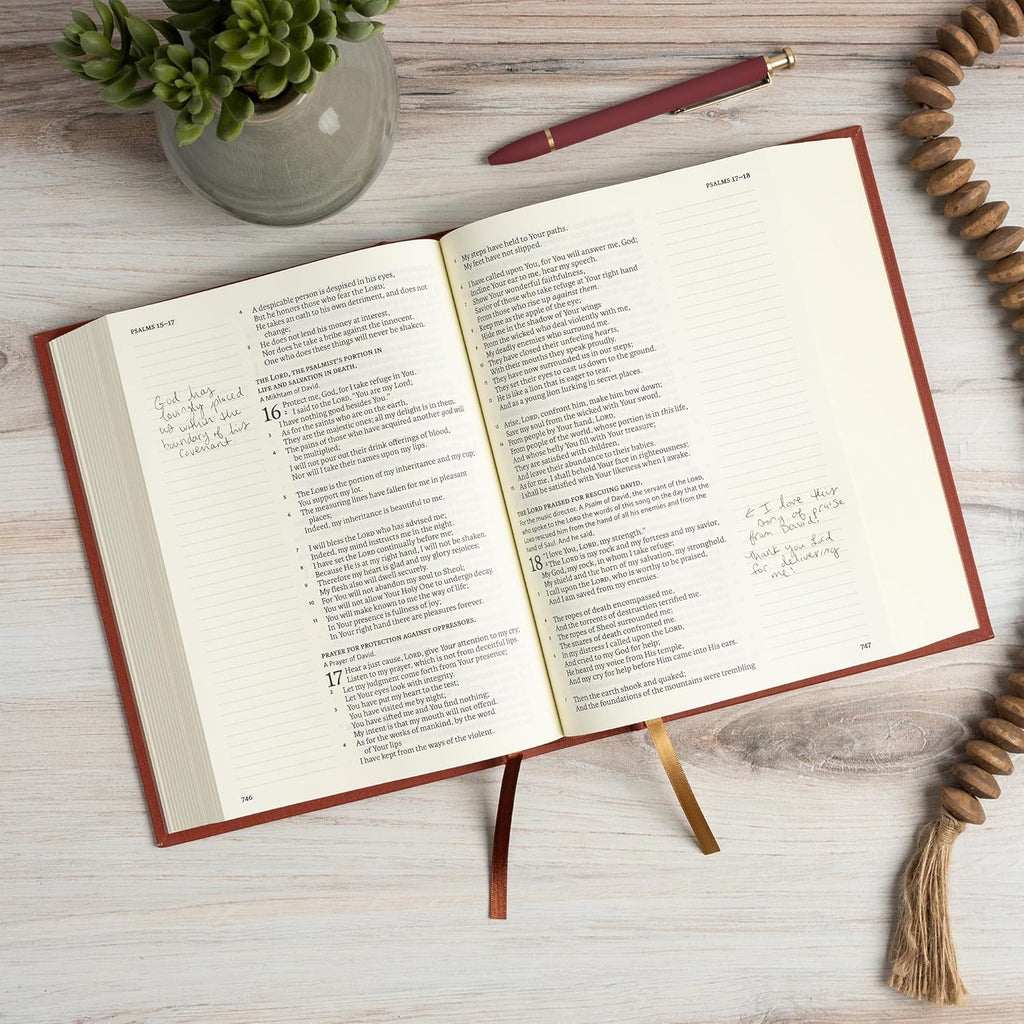 PSALMS 15–17
4 A despicable person is despised in his eyes,
But he honors those who fear the LORD;
He takes an oath to his own detriment, and does not
change;
5 He does not lend his money at interest,
Nor does he take a bribe against the innocent.
One who does these things will never be shaken.
THE LORD, THE PSALMIST'S PORTION IN
LIFE AND SALVATION IN DEATH.
A Mikhtam of David.
16 Protect me, God, for I take refuge in You.
2 I said to the LORD, "You are my Lord;
I have nothing good besides You."
3 As for the saints who are on the earth,
They are the majestic ones; all my delight is in them.
4 The pains of those who have acquired another god will
be multiplied;
I will not pour out their drink offerings of blood,
Nor will I take their names upon my lips.
5 The LORD is the portion of my inheritance and my cup;
You support my lot.
6 The measuring lines have fallen for me in pleasant
places;
Indeed, my inheritance is beautiful to me.
7 I will bless the LORD who has advised me;
Indeed, my mind instructs me in the night.
8 I have set the LORD continually before me;
Because He is at my right hand, I will not be shaken.
9 Therefore my heart is glad and my glory rejoices;
My flesh also will dwell securely.
10 For You will not abandon my soul to Sheol;
You will not allow Your Holy One to undergo decay.
11 You will make known to me the way of life;
In Your presence is fullness of joy;
In Your right hand there are pleasures forever.
PRAYER FOR PROTECTION AGAINST OPPRESSORS.
A Prayer of David.
17 Hear a just cause, LORD, give Your attention to my cry;
Listen to my prayer, which is not from deceitful lips.
2 Let my judgment come forth from Your presence;
Let Your eyes look with integrity.
3 You have put my heart to the test;
You have visited me by night;
You have sifted me and You find nothing;
My intent is that my mouth will not offend.
4 As for the works of mankind, by the word
of Your lips
I have kept from the ways of the violent.
God has
lovingly placed
us within the
boundary of his
Covenant
746
PSALMS 17–18
5 My steps have held to Your paths.
My feet have not slipped.
6 I have called upon You, for You will answer me, God;
Incline Your ear to me, hear my speech.
7 Show Your wonderful faithfulness,
Savior of those who take refuge at Your right hand
From those who rise up against them.
8 Keep me as the apple of the eye;
Hide me in the shadow of Your wings
9 From the wicked who deal violently with me,
My deadly enemies who surround me.
10 They have closed their unfeeling hearts,
With their mouths they speak proudly.
11 They have now surrounded us in our steps;
They set their eyes to cast us down to the ground.
12 He is like a lion that is eager to tear,
And as a young lion lurking in secret places.
13 Arise, LORD, confront him, make him bow down;
Save my soul from the wicked with Your sword,
14 From people by Your hand, LORD,
From people of the world, whose portion is in this life,
And whose belly You fill with Your treasure;
They are satisfied with children,
And leave their abundance to their babies.
15 As for me, I shall behold Your face in righteousness;
I shall be satisfied with Your likeness when I awake.
THE LORD PRAISED FOR RESCUING DAVID.
For the music director. A Psalm of David, the servant of the LORD,
who spoke to the LORD the words of this song on the day that the
LORD rescued him from the hand of all his enemies and from the
hand of Saul. And he said,
18 "I love You, LORD, my strength."
2 The LORD is my rock and my fortress and my savior,
My God, my rock, in whom I take refuge;
My shield and the horn of my salvation, my stronghold.
3 I call upon the LORD, who is worthy to be praised,
And I am saved from my enemies.
4 The ropes of death encompassed me,
And the torrents of destruction terrified me.
5 The ropes of Sheol surrounded me;
The snares of death confronted me.
6 In my distress I called upon the LORD,
And cried to my God for help;
He heard my voice from His temple,
And my cry for help before Him came into His ears.
7 Then the earth shook and quaked;
And the foundations of the mountains were trembling
← I love this
song of praise
from David!
Thank you Lord
for delivering
me!
747